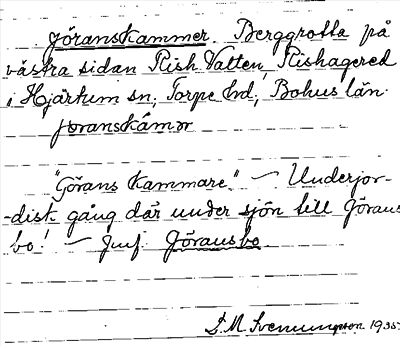 Göranskammer. Berggrotta på
västra sidan Rish Vatten, Rishagered
i Hjärtum sn, Torpe hd, Bohus län.
jøranskámər
"Görans kammare." — Underjor-
-disk gång där under sjön till Görans
bo! — Jmf. Göransbo.
S. M. Svenungsson 1935.